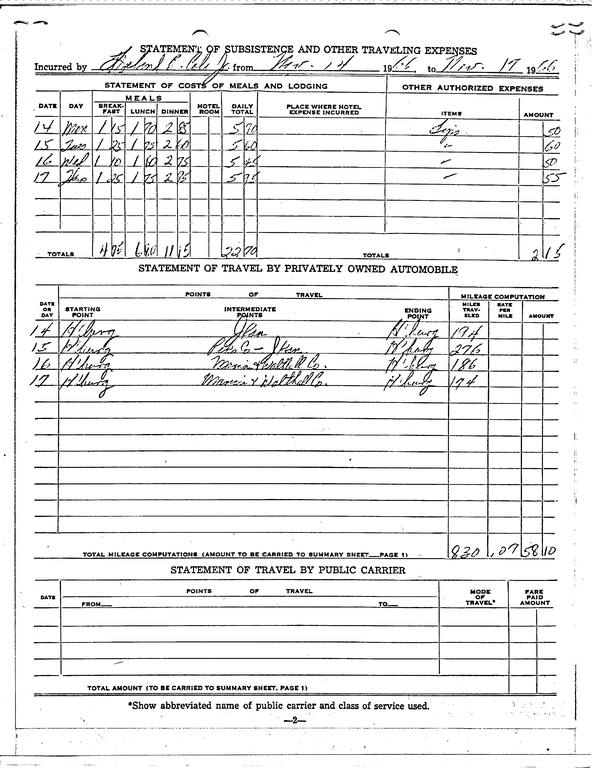 STATEMENT OF SUBSISTENCE AND OTHER TRAVELING EXPENSES
Incurred by Jr. from Nov. 14 1966, to Nov. 17 1966
STATEMENT OF COSTS OF MEALS AND LODGING OTHER AUTHORIZED EXPENSES
DATE DAY MEALS BREAK-FAST LUNCH DINNER HOTEL ROOM DAILY TOTAL PLACE WHERE HOTEL EXPENSE INCURRED ITEMS AMOUNT
14 Mon 1 15 1 70 2 85 5 70 Tips 50
15 Tues 1 25 1 75 2 60 5 60 " 60
16 Wed 1 10 1 60 2 75 5 45 " 50
17 Thurs 1 25 1 75 2 95 5 95 " 55
TOTALS 4 75 6 80 11 15 22 70 TOTALS 2 15
STATEMENT OF TRAVEL BY PRIVATELY OWNED AUTOMOBILE
DATE OR DAY POINTS OF TRAVEL MILEAGE COMPUTATION
STARTING POINT INTERMEDIATE POINTS ENDING POINT MILES TRAV-ELED RATE PER MILE AMOUNT
14 H'burg Jksn H'burg 194
15 H'burg Co - Jksn H'burg 276
16 H'burg Marion & Walthall Co. H'burg 186
17 H'burg Marion & Walthall Co. H'burg 174
TOTAL MILEAGE COMPUTATIONS (AMOUNT TO BE CARRIED TO SUMMARY SHEET—PAGE 1) 830 .07 58 10
STATEMENT OF TRAVEL BY PUBLIC CARRIER
DATE POINTS OF TRAVEL MODE OF TRAVEL* FARE PAID AMOUNT
FROM— TO—
TOTAL AMOUNT (TO BE CARRIED TO SUMMARY SHEET, PAGE 1)
*Show abbreviated name of public carrier and class of service used.
—2—